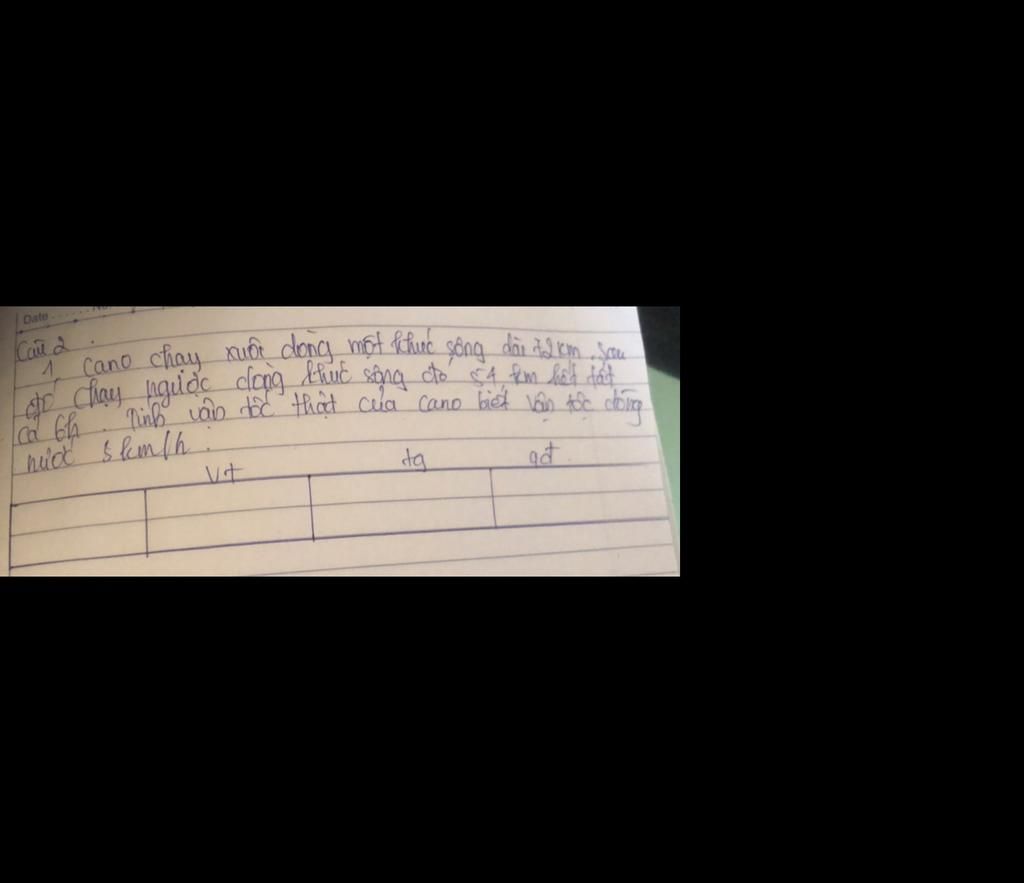 Date
Câu 2.
1, Cano chạy xuôi dòng một khúc sông dài 72km. Sau
đó chạy ngược dòng khúc sông đó 54 km hết tất
cả 6h. Tính vận tốc thật của cano biết vận tốc dòng
nước 3km/h.
Vt tg qđ